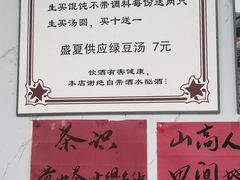 生买馄饨不带调料每份送两只
生买汤圆，买十送一
盛夏供应绿豆汤 7元
饮酒有害健康，
本店谢绝自带酒水酗酒！
茶识
山高人